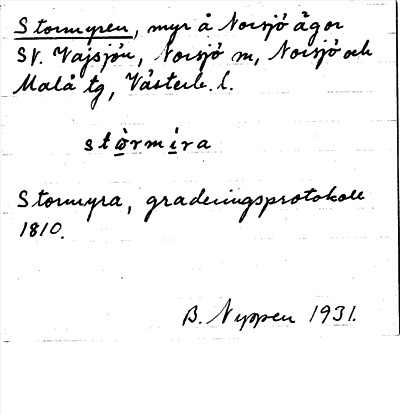 Stormyren, myr å Norsjö ägor
SV. Vajsjön, Norsjö sn, Norsjö och
Malå tg, Västerb. l.
stòrmíra
Stormyra, graderingsprotokoll
1810.
B. Nyppen 1931.